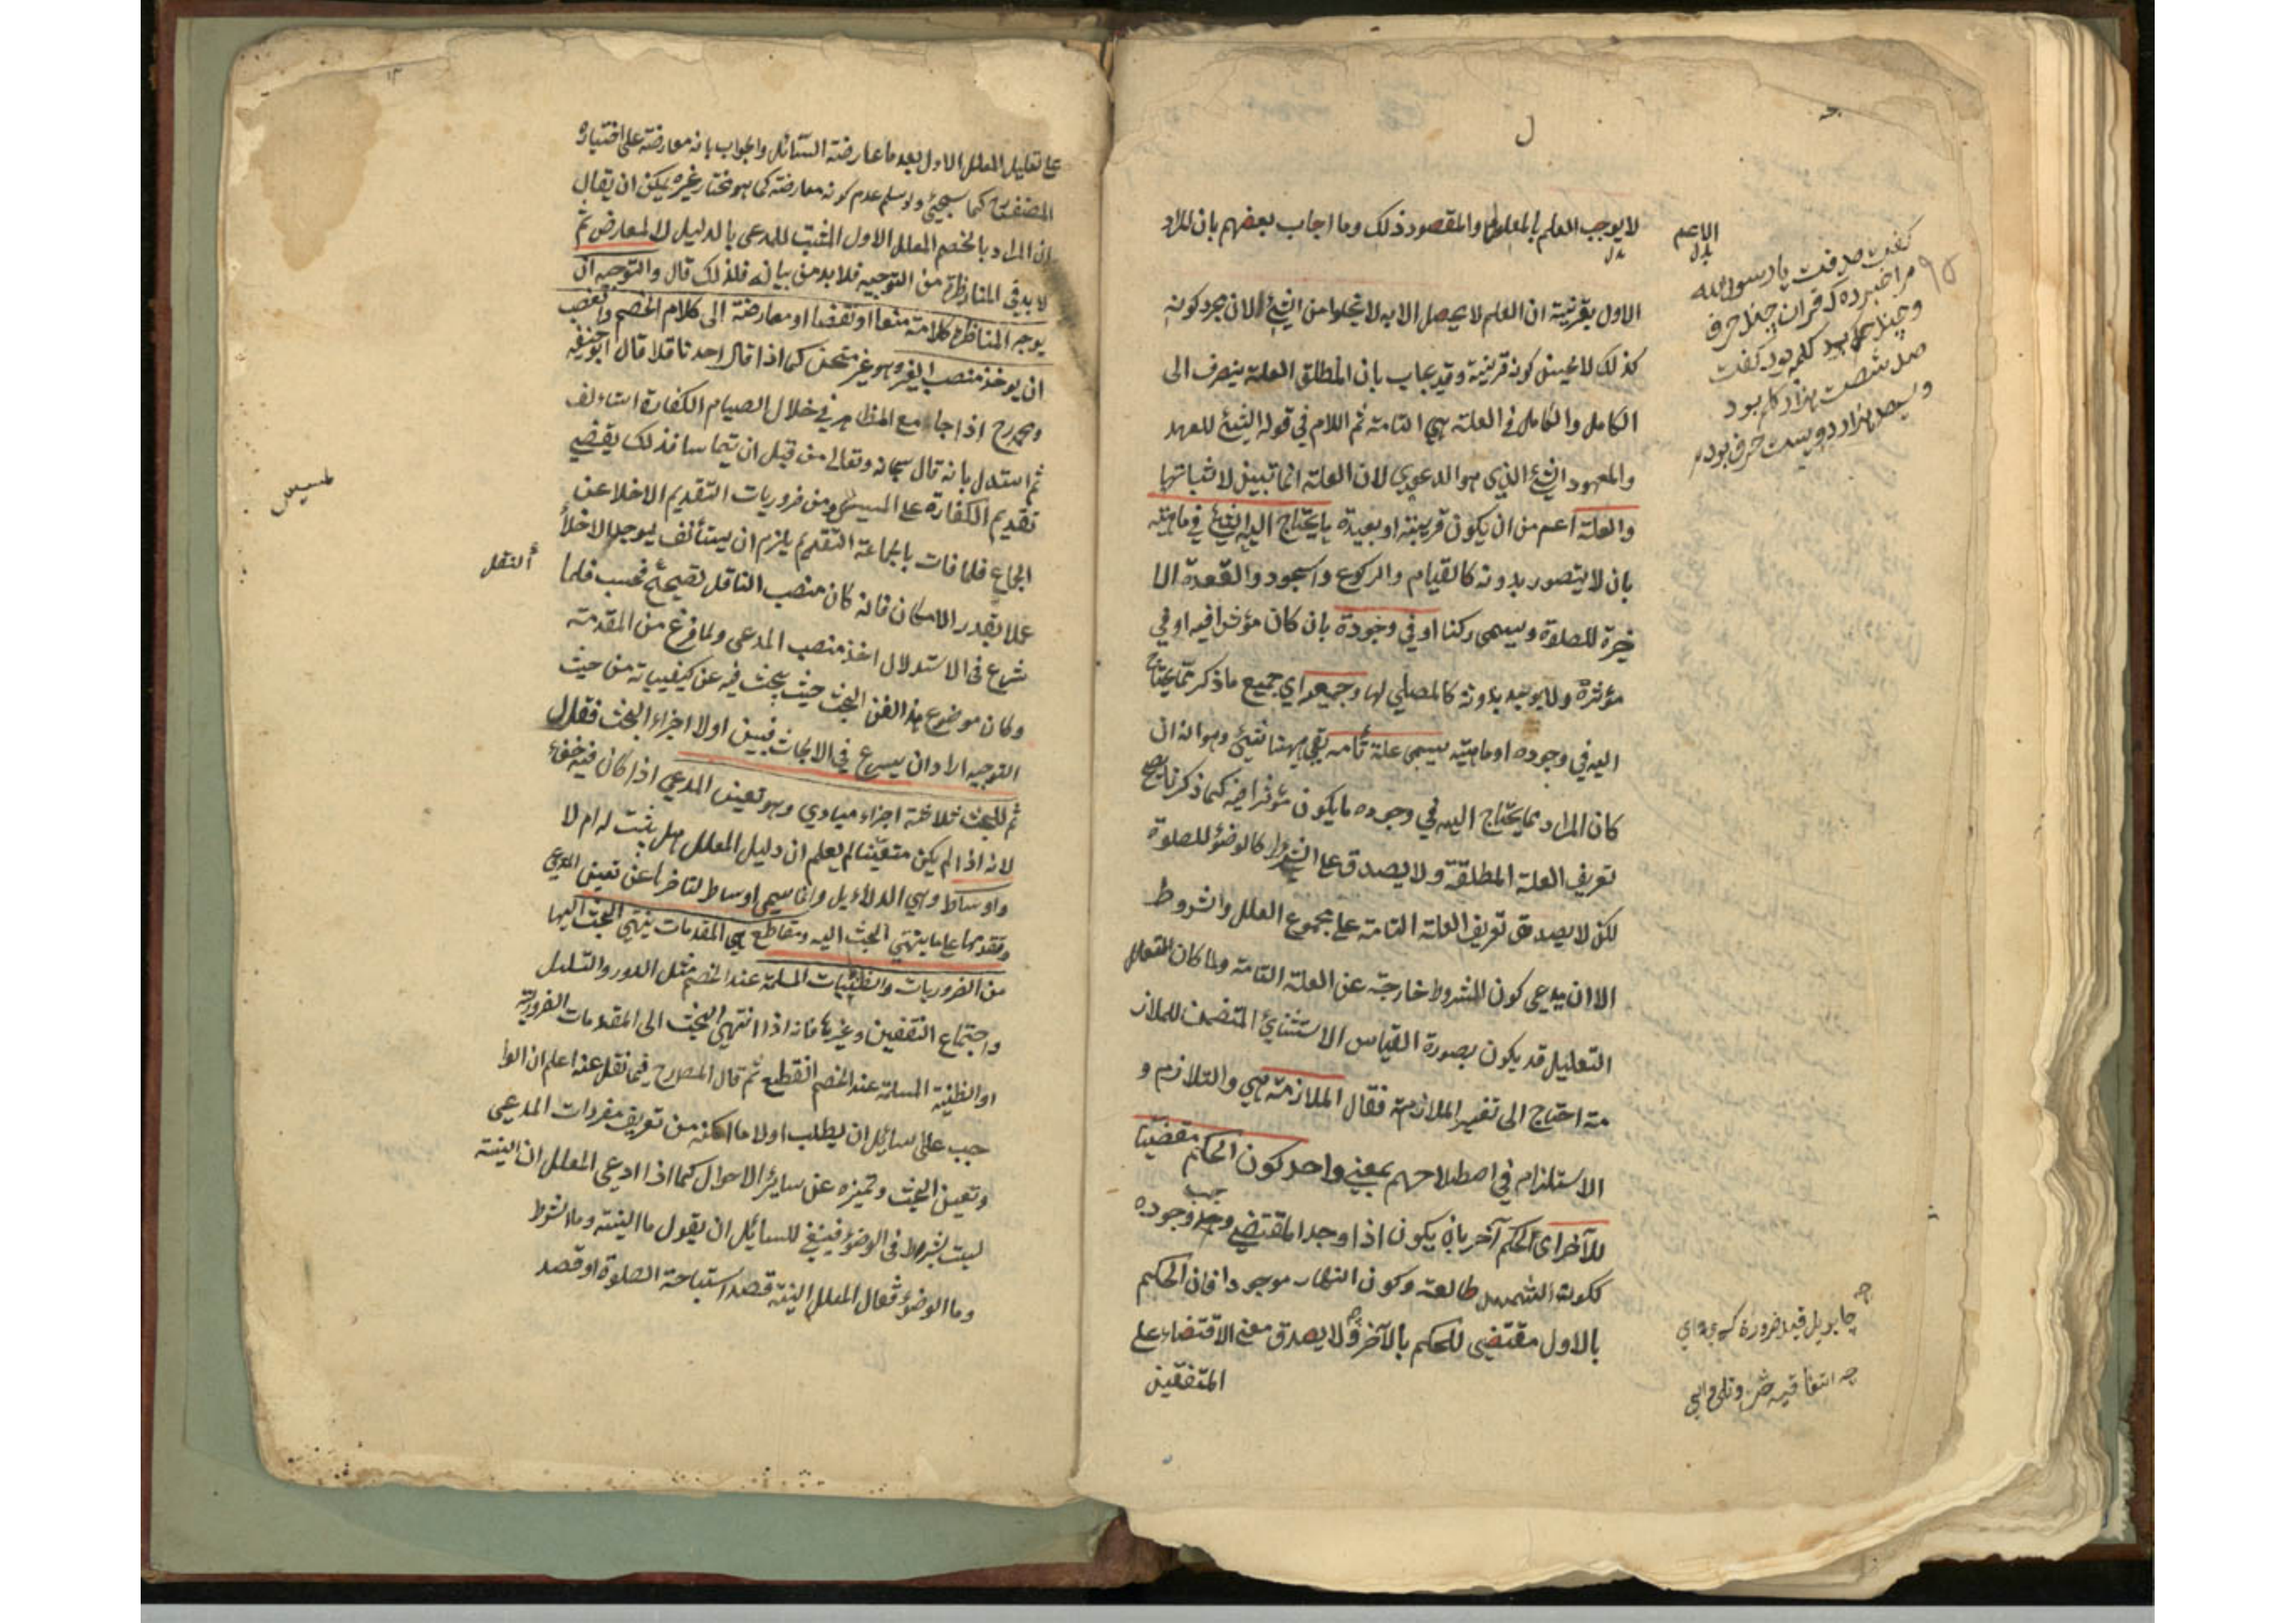 لا يوجب العلم بالمعلول والمقصود ذلك وما اجاب بعضهم بان المراد
الاول بقرينة ان العلم لا يحصل الا به لا يخلوا من الشئ الان مجرد كونه
كذلك لا يحسن كونه قرينة وقد يجاب بان المطلق العلة ينصرف الى
الكامل والكامل في العلة هي التامة ثم اللام في قوله الشئ للعهد
والمعهود الشئ الذي هو الدعوي لان العلة انما تبين لاثباتها
والعلة اعم من ان يكون قريبة او بعيدة ما يحتاج اليه الشئ في ماهيته
بان لا يتصور بدونه كالقيام والركوع والسجود والقعدة الا
خيرة للصلوة ويسمى ركنا او في وجوده بان كان مؤثرا فيه او في
مؤثره ولا يوجد بدونه كالمصلي لها وجميعه اي جميع ما ذكر مما يحتاج
اليه في وجوده او ماهيته يسمى علة تامه بقي ههنا شئ وهو انه ان
كان المراد بما يحتاج اليه في وجوده ما يكون مؤثرا فيه كما ذكرنا يصح
تعريف العلة المطلقة ولا يصدق على الشرط كالوضؤ للصلوة
لكن لا يصدق تعريف العلة التامة على مجموع العلل والشروط
الا ان يدعى كون الشروط خارجة عن العلة التامة ولما كان
التعليل قد يكون بصورة القياس الاستثنائي المتضمن للملاز
مة احتاج الى تفسير الملازمة فقال الملازمة هي والتلازم و
الاستلزام في اصطلاحهم بمعنى واحد كون الحكم مقتضيا
للآخر اى الحكم آخر بان يكون اذا وجد المقتضي وجد وجوده
ككون الشمس طالعة وكون النهار موجودا فان الحكم
بالاول مقتضى للحكم بالآخر ولا يصدق معنى الاقتضاء على
المتفقين
الاعم
بدل
كفت صدقت يا رسول الله
مرا خبر ده كه قران چند حرف
وچند كلمه بود كفت
على تعليل المعلل الاول بعد ما عارضه السائل والجواب بانه معارضة على اختيار
المصنف كما سيجئ ولو سلم عدم كونه معارضة كما هو مختار غيره يمكن ان يقال
ان المراد بالخصم المعلل الاول المثبت للمدعى بالدليل لا المعارض ثم
لا بد في المناظرة من التوجيه فلا بد من بيانه فلذلك قال والتوجيه ان
يوجه المناظر كلامه منعا او نقضا او معارضة الى كلام الخصم والغصب
ان يوخذ منصب الغير وهو غير مستحسن كما اذا قال احد ناقلا قال ابو حنيفه
رح اذا جامع المظاهر في خلال الصيام الكفارة استانف
ثم استدل بانه قال سبحانه وتعالى من قبل ان يتماسا فذلك يقتضي
تقديم الكفارة على المسيس ومن ضروريات التقديم الاخلا عن
الجماع فلما فات بالجماعة التقديم يلزم ان يستأنف ليوجد الاخلا
عملا بقدر الامكان فانه كان منصب الناقل تصحيح فحسب فلما
شرع في الاستدلال اخذ منصب المدعى ولما فرغ من المقدمة
وكان موضوع هذا الفن البحث حيث يبحث فيه عن كيفياته من حيث
التوجيه اراد ان يسرع في الابحاث فبين اولا اجزاء البحث فقال
ثم للبحث ثلاثة اجزاء مبادي وهو تعيين المدعي اذا كان فيه خفاء
لانه اذا لم يكن متعينا لم يعلم ان دليل المعلل هل يثبت له ام لا
واوساط وهي الدلائل وانما سمي اوساط لتاخرها عن تعيين المدعي
وتقدمها على ما ينتهي البحث اليه ومقاطع هي المقدمات ينتهي البحث اليها
من الضروريات والظنيات المسلمة عند الخصم مثل الدور والتسلسل
واجتماع النقيضين وغيرها فانه اذا انتهى البحث الى المقدمات الضرورية
او الظنية المسلمة عند الخصم انقطع ثم قال المص رح فيما نقل عنه اعلم ان الوا
جب على سائل ان يطلب اولا ما امكنه من تعريف مفردات المدعى
وتعيين البحث وتميزه عن سائر الاحوال كما اذا ادعى المعلل ان النية
ليست بشرط في الوضؤ فينبغي للسائل ان يقول ما النية وما الشرط
وما الوضؤ فقال المعلل النية قصد استباحة الصلوة او قصد
مسيس
النقل